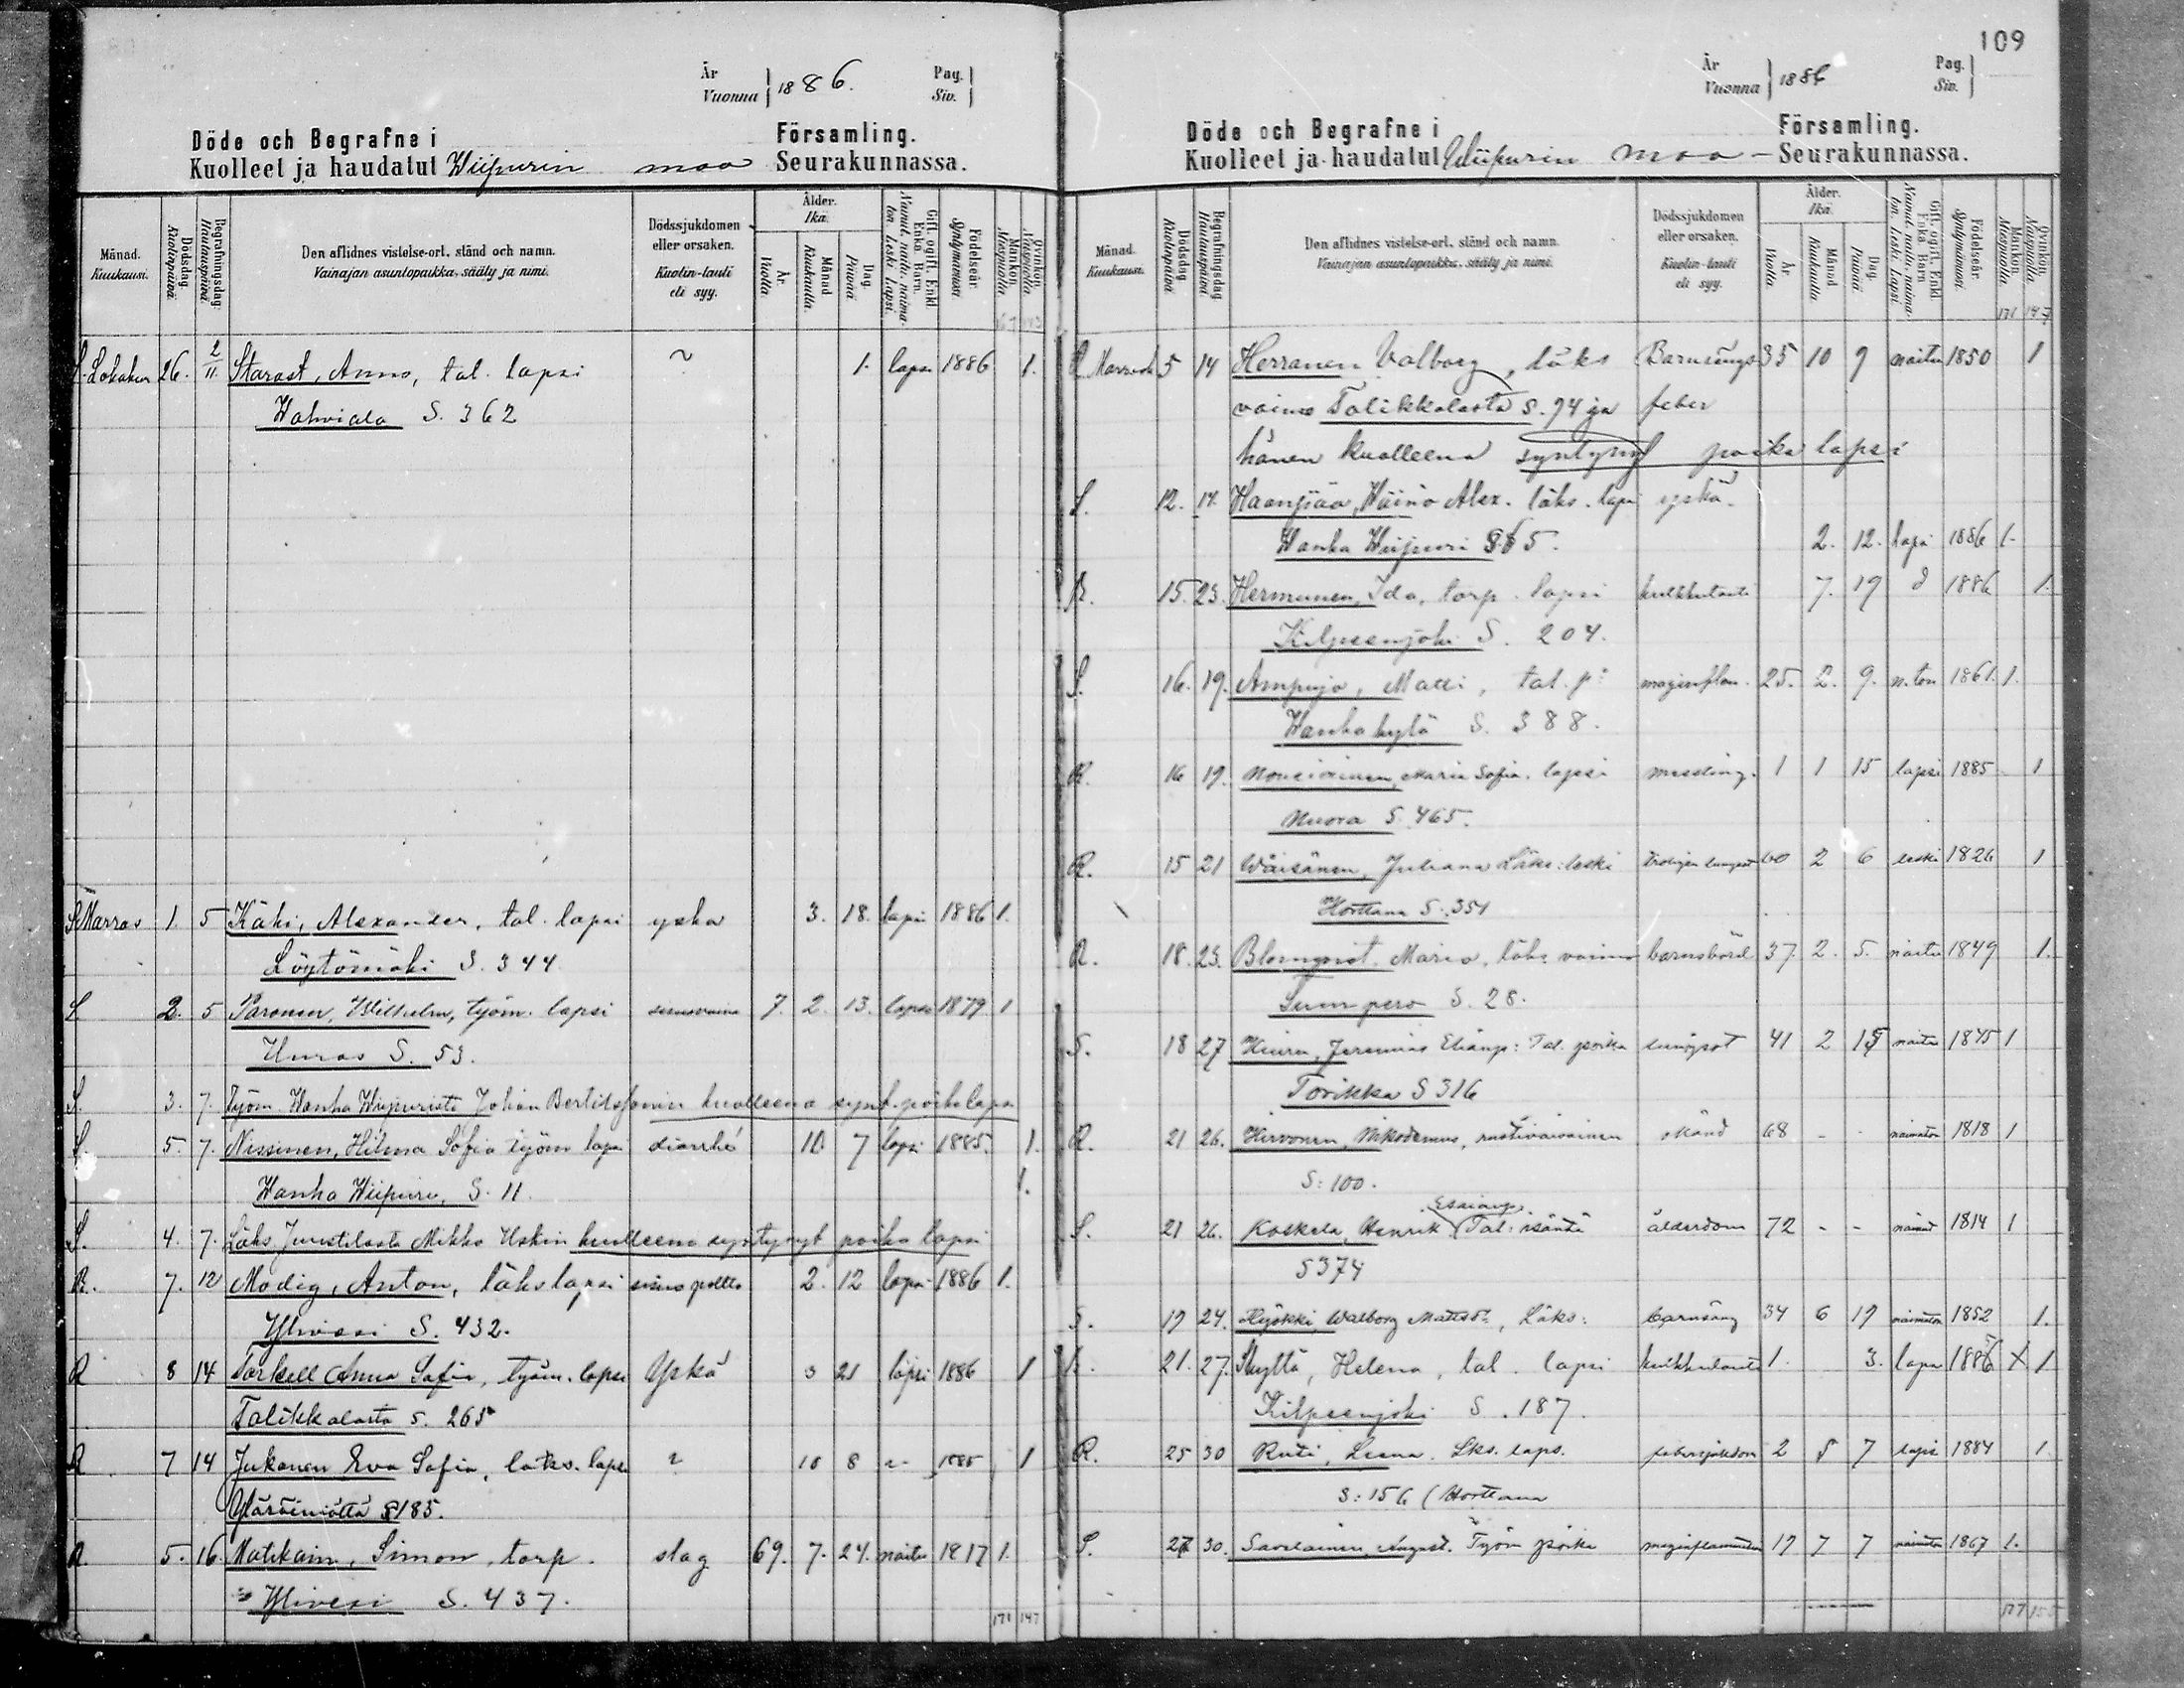 År
Vuonna 1886.
Pag.
Siv.
Döde och Begrafne i Församling.
Kuolleet ja haudatut Wiipurin maa Seurakunnassa.
Månad. Kuukausi.
Dödsdag. Kuolinpäivä.
Begrafningsdag. Hautauspäivä.
Den aflidnes vistelse-ort, stånd och namn.
Vainajan asuntopaikka, sääty ja nimi.
Dödssjukdomen eller orsaken.
Kuolin-tauti eli syy.
Ålder. Ikä.
År. Vuotta.
Månad. Kuukautta.
Dag. Päivää.
Gift, ogift. Enkl. Enka. Barn.
Nainut, naitu, naimaton. Leski. Lapsi.
Födelseår. Syntymävuosi.
Mankön. Miespuolia.
Qvinkön. Naispuolia.
167 143
S. Lokakuu 26. 2/11. Starast, Anna, tal. lapsi ~ 1. lapsi 1886 1.
Hahviala S. 362
S Marras 1. 5 Käki, Alexander, tal. lapsi yskä 3. 18. lapsi 1886 1.
Löytömäki S. 344
S. 2. 5 Paronen, Wilhelm, työm. lapsi 7. 2. 13. lapsi 1879 1
Uuras S. 53.
S. 3. 7. Työm. Wanha Wiipurista Johan Bertilssonin kuolleena synt. poikalapsi
S. 5. 7. Nissinen, Hilma Sofia työm lapsi diarrhé 10 7 lapsi 1885. 1.
Wanha Wiipuri, S. 11. 1.
S. 4. 7. Läks. Juustilasta Mikko Uskin kuolleena syntynyt poika lapsi
R. 7. 12 Modig, Anton, läks lapsi 2. 12 lapsi 1886 1.
Ylivesi S. 432.
R 8 14 Torkell Anna Sofia, työm. lapsi Yskä 3 21 lapsi 1886 1
Talikkalasta S. 265
R 7 14 Jukonen Eva Sofia, läks. lapsi ~ 10 8 ~ 1885 1
S 185.
R. 5. 16. Matikain, Simon, torp. slag 69. 7. 24. naitu 1817 1.
Ylivesi S. 437.
171 147
109
År
Vuonna 1886
Pag.
Siv.
Döde och Begrafne i Församling.
Kuolleet ja haudatut Wiipurin maa - Seurakunnassa.
Månad. Kuukausi.
Dödsdag. Kuolinpäivä.
Begrafningsdag. Hautauspäivä.
Den aflidnes vistelse-ort, stånd och namn.
Vainajan asuntopaikka, sääty ja nimi.
Dödssjukdomen eller orsaken.
Kuolin-tauti eli syy.
Ålder. Ikä.
År. Vuotta.
Månad. Kuukautta.
Dag. Päivää.
Gift, ogift. Enkl. Enka. Barn
Nainut, naitu, naimaton. Leski. Lapsi.
Födelseår. Syntymävuosi.
Mankön. Miespuolia.
Qvinkön. Naispuolia.
171 147
R Marrask 5 14 Herranen Valborg, läks Barnsängs 35 10 9 naitu 1850 1
vaimo Talikkalasta S. 94 ja feber
hänen kuolleena syntynyt poika lapsi
S. 12. 14. Haanpää, Wäinö Alex. läks. lapsi yskä.
Wanha Wiipuri S 65. 2. 12. lapsi 1886 1.
R. 15. 23. Hermunen, Ida, torp. lapsi kulkkutauti 7. 19 d 1886 1.
Kilpeenjoki S. 204.
S. 16. 19. Ampuja, Matti, tal. p: maginflam. 25. 2. 9. n.ton 1861. 1.
Wanhakylä S. 388.
R. 16 19. Nousiainen, Maria Sofia. lapsi messling. 1 1 15 lapsi 1885 1
Nuora S. 465.
R. 15 21 Wäisänen, Juliana Läks: leski 60 2 6 leski 1826 1
Horttana S. 351
R. 18. 23. Blomqvist, Maria, läks vaimo barnsbörd 37. 2. 5. naitu 1849 1.
Sumpero S. 28.
S. 18 27 Hiiru, Jeremias Eliasp: Tal. poika lungsot 41 2 15 naitu 1845 1
Torikka S 316
R. 21 26. Hirvonen, Nikodemus, ruotivaivainen okänd 68 - - naimaton 1818 1
S: 100.
Esaiasp.
S. 21 26. Koskela, Henrik Tal: isäntä ålderdom 72 - - nainut 1814 1
S 374
S. 19 24. Hyökki, Walborg Mattsdr, Läks: barnsäng 34 6 19 naimaton 1852 1.
R. 21. 27. Skyttä, Helena, tal. lapsi kulkkutauti 1. 3. lapsi 1885 X 1
Kilpeenjoki S. 187.
R. 25 30 Ruti, Leena. Lks. laps. febersjukdom 2 8 7 lapsi 1884 1.
S: 156 (Horttana
S. 27 30. Savolainen, August. Työm poika maginflammation 19 7 7 naimaton 1867 1.
177 155